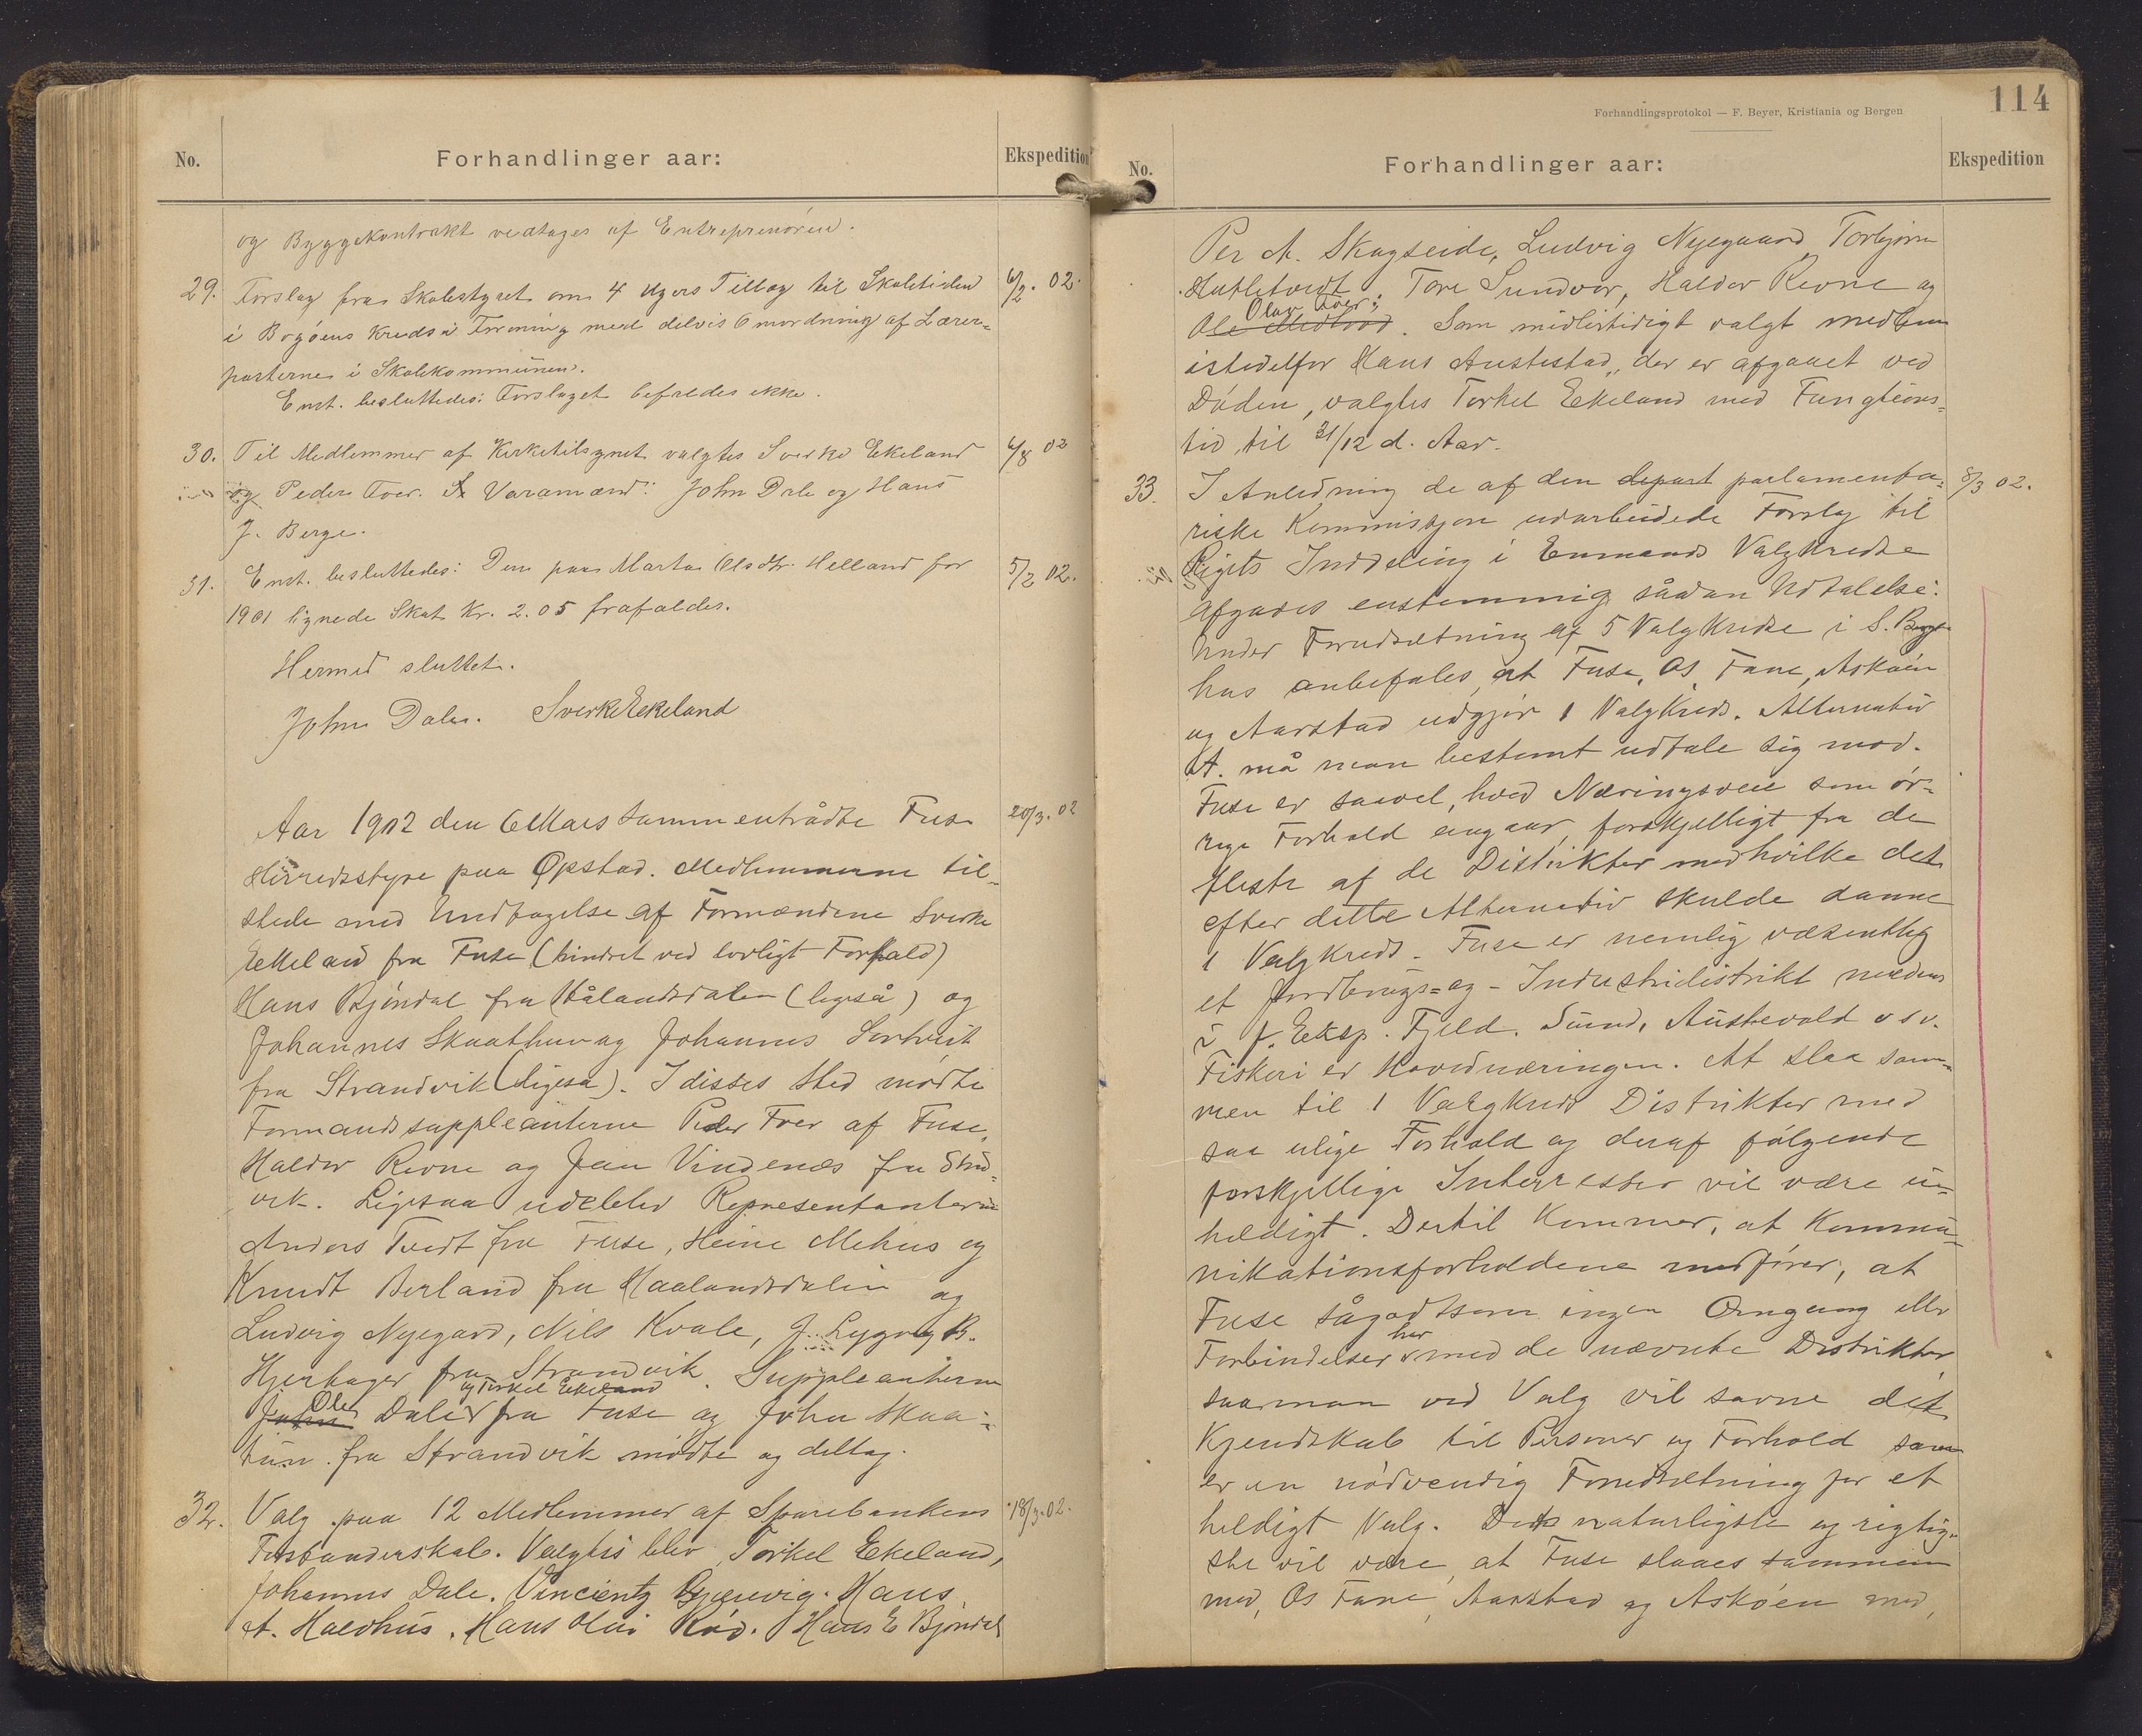 No. Forhandlinger aar: Ekspedition
og Byggekontrakt vedtages af Entreprenøren.
29. Forslag fra Skolestyret om 4 Ugers Tillæg til Skoletiden 6/2. 02.
i Bogøens Kreds i Forening med delvis Omordning af Lærer-
posterne i Skolekommunen.
Enst. besluttedes: Forslaget befaldes ikke.
30. Til Medlemmer af Kirketilsynet valgtes Sverke Ekeland 02
og Peder Tver. Varamænd: John Dale og Hans
J. Berge.
31. Enst. besluttedes: Den paa Marta Olsdtr. Helland for 5/2 02.
1901 lignede Skat Kr. 2.05 frafaldes.
Hermed sluttet.
John Dale. Sverke Ekeland
Aar 1902 den 6 Mars sammentrådte Fuse 20/3. 02
Herredsstyre paa Øpstad. Medlemmerne til-
stede med Undtagelse af Formændene Sverke
Eekeland fra Fuse (hindret ved lovligt Forfald)
Hans Bjøndal fra Hålandsdalen (ligeså) og
Johannes Skaathun og Johannes Sørtveit
fra Strandvik (ligesa). I disses Sted mødte
Formandssuppleanterne Peder Tver af Fuse,
Haldor Revne og Jan Vindenes fra Strd-
vik. Ligesaa udeblev Representanterne
Anders Tvedt fra Fuse, Heine Mehus og
Knudt Berland fra Haalandsdalen og
Ludvig Nyegard, Nils Kvale, J. Lygre og B.
Hjertager fra Strandvik. Suppleanterne
Ole og Torkel Ekeland
John Dale fra Fuse og John Skaa-
tun fra Strandvik mødte og deltog.
32. Valg paa 12 Medlemmer af Sparebankens 18/3. 02.
Forstanderskab. Valgtes blev Torkel Ekeland,
Johannes Dale. Vincientz Gjerevig. Hans
A. Holdhus. Hans Olai Rød. Hans E Bjøndal
Forhandlingsprotokol — F. Beyer, Kristiania og Bergen
114
No. Forhandlinger aar: Ekspedition
Per A. Skagseide, Ludvig Nyegaard, Torbjørn
Hatletvedt, Tore Sundvor, Haldor Revne og
Olav Tver:
Ole. Som midlertidigt valgt medlem
istedetfor Hans Austestad, der er afgaaet ved
Døden, valgtes Torkel Ekeland med Fungtions-
tid til 31/12 d. Aar.
33. I Anledning de af den depart parlamenta- 8/3 02.
riske Kommisjon udarbeidede Forslag til
Rigets Inddeling i Enmands Valgkredse
afgaves enstemmig sådan Udtalelse:
Under Forudsætning af 5 Valgkredse i S. Berg-
hus anbefales at Fuse, Os, Fane, Askøen
og Aarstad udgjør 1 Valgkreds. Alternativ
A. må man bestemt udtale sig mod.
Fuse er saavel, hvad Næringsveie som øv-
rige Forhold angaar, forskjelligt fra de
fleste af de Distrikter med hvilke det
efter dette Alternativ skulde danne
1 Valgkreds. Fuse er nemlig væsentlig
et Jordbrugs- og Industridistrikt medens
i f. Eeksp. Fjeld, Sund, Austevold o s v.
Fiskeri er Hovednæringen. At slaa sam-
men til 1 Valgkreds Distrikter med
saa ulige Forhold og deraf følgende
forskjellige Interresser vil være u-
heldigt. Dertil kommer, at Kommu-
nikationsforholdene medfører, at
Fuse sågodtsom ingen Omgang eller
Forbindelser har med de nævnte Distrikter
saa man ved Valg vil savne det
Kjendskab til Personer og Forhold som
er en nødvendig Forudsætning for et
heldigt Valg. Det naturligste og rigtig-
ste vil være, at Fuse slaaes sammen
med, Os Fane, Aarstad og Askøen med,